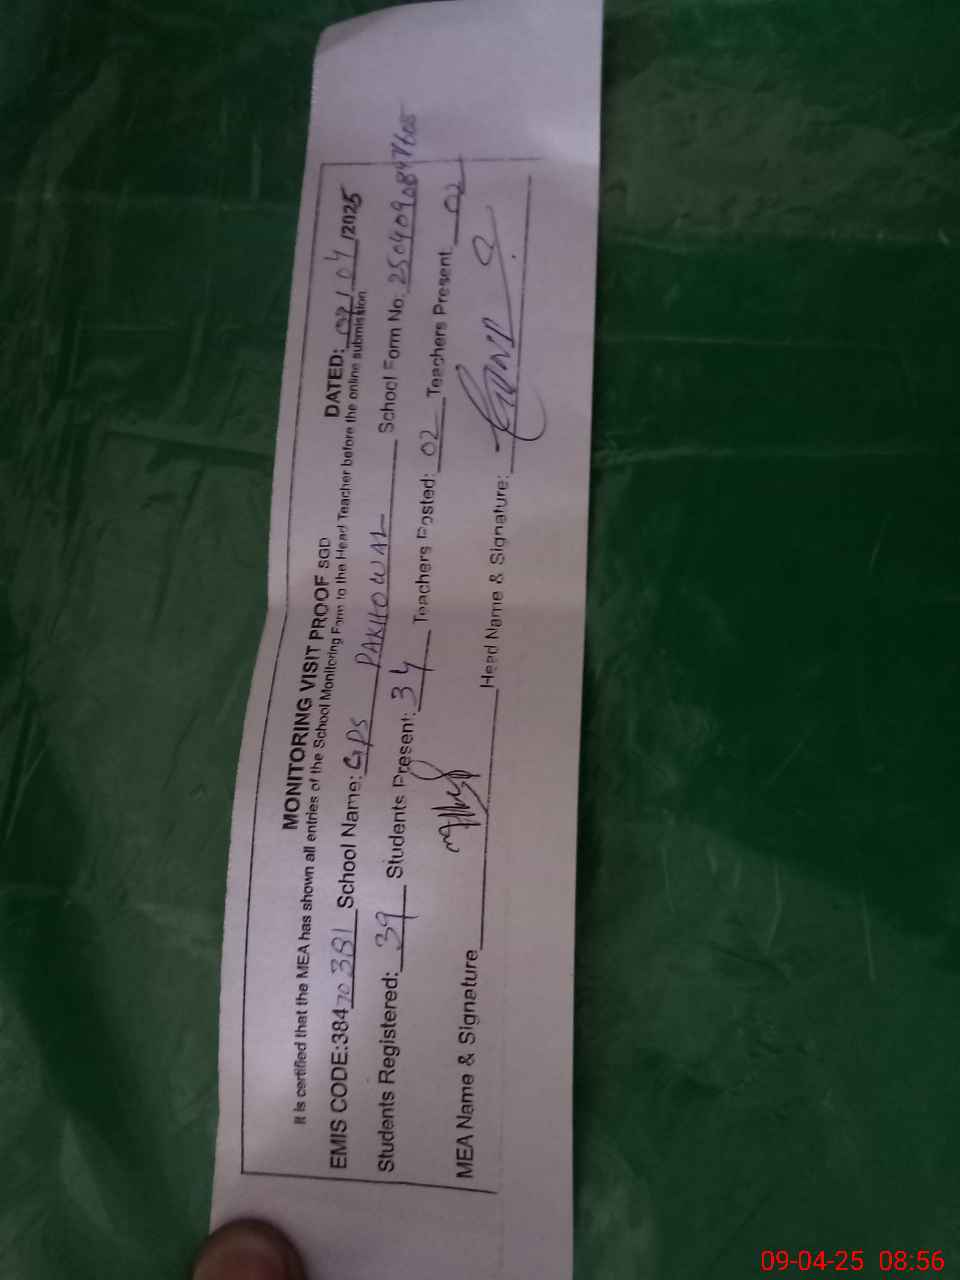 MONITORING VISIT PROOF SGD DATED: 09/04/2025
It is certified that the MEA has shown all entries of the School Monitoring Form to the Head Teacher before the online submission.
EMIS CODE:38470381 School Name: GPS PAKHOWAL School Form No: 2504090847605
Students Registered: 39 Students Present: 34 Teachers Posted: 02 Teachers Present: 02
MEA Name & Signature Head Name & Signature:
09-04-25 08:56